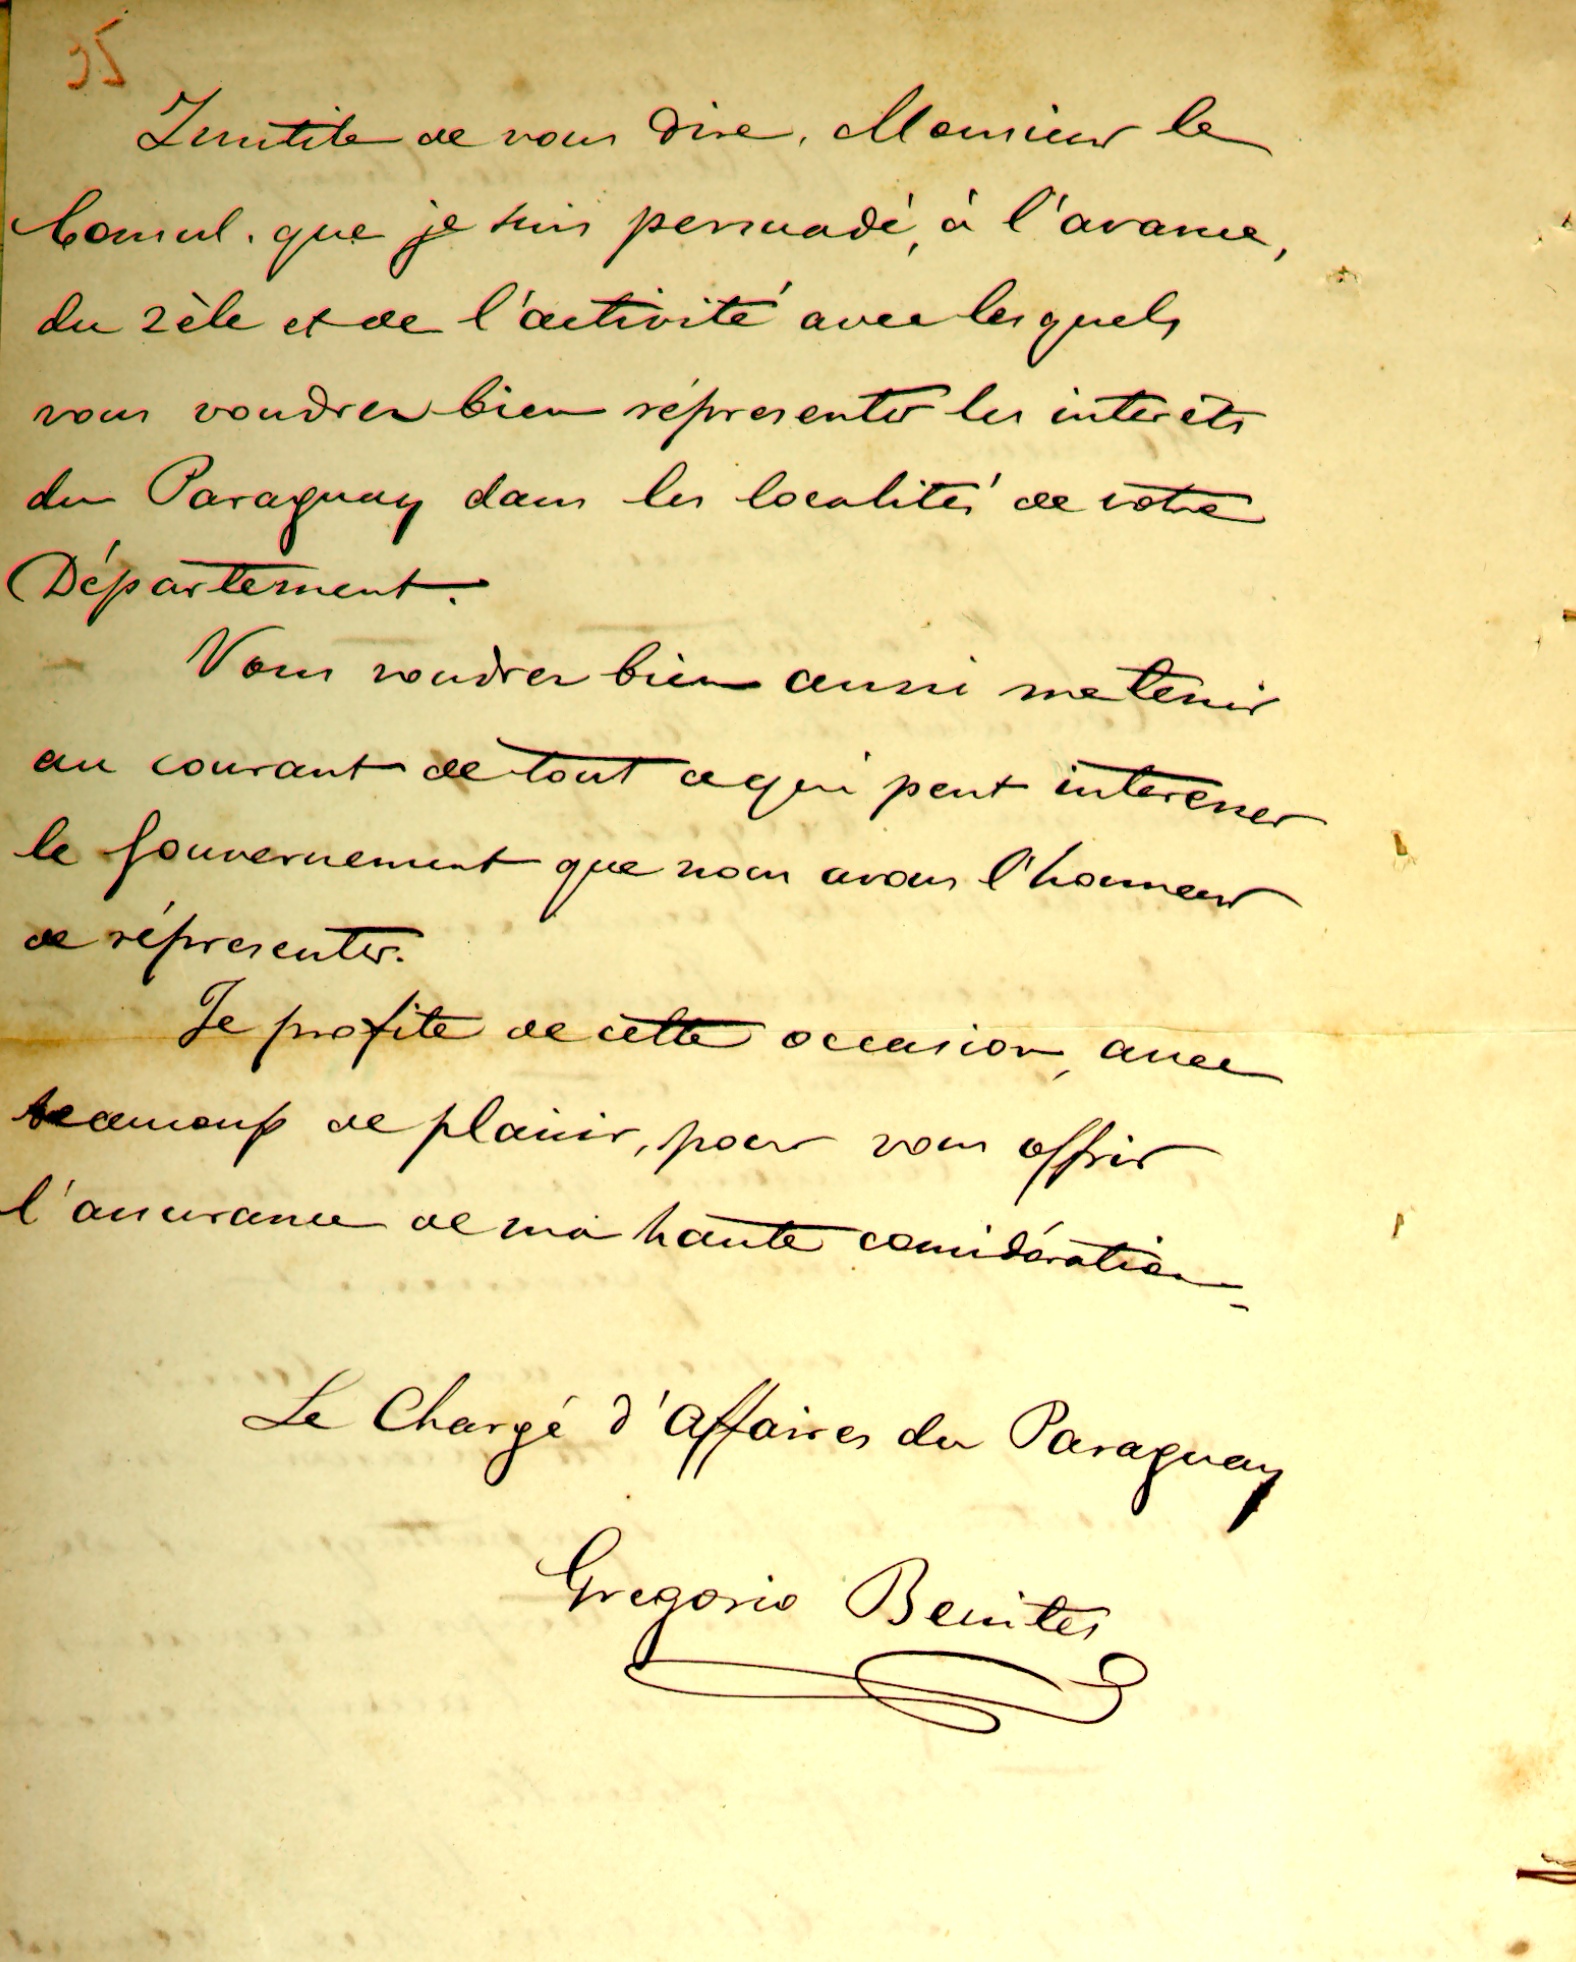 Inutile de vous dire, Monsieur le
Consul, que je suis persuadé, à l'avance,
du zèle et de l'activité avec lesquels
vous voudrez bien répresenter les interêts
du Paraguay dans les localités de votre
Département.
Vous voudrez bien aussi me tenir
au courant de tout ce qui peut interesser
le Gouvernement que nous avons l'honneur
de répresenter.
Je profite de cette occasion, avec
beaucoup de plaisir, pour vous offrir
l'assurance de ma haute considération_
Le Chargé d'Affaires du Paraguay
Gregorio Benites